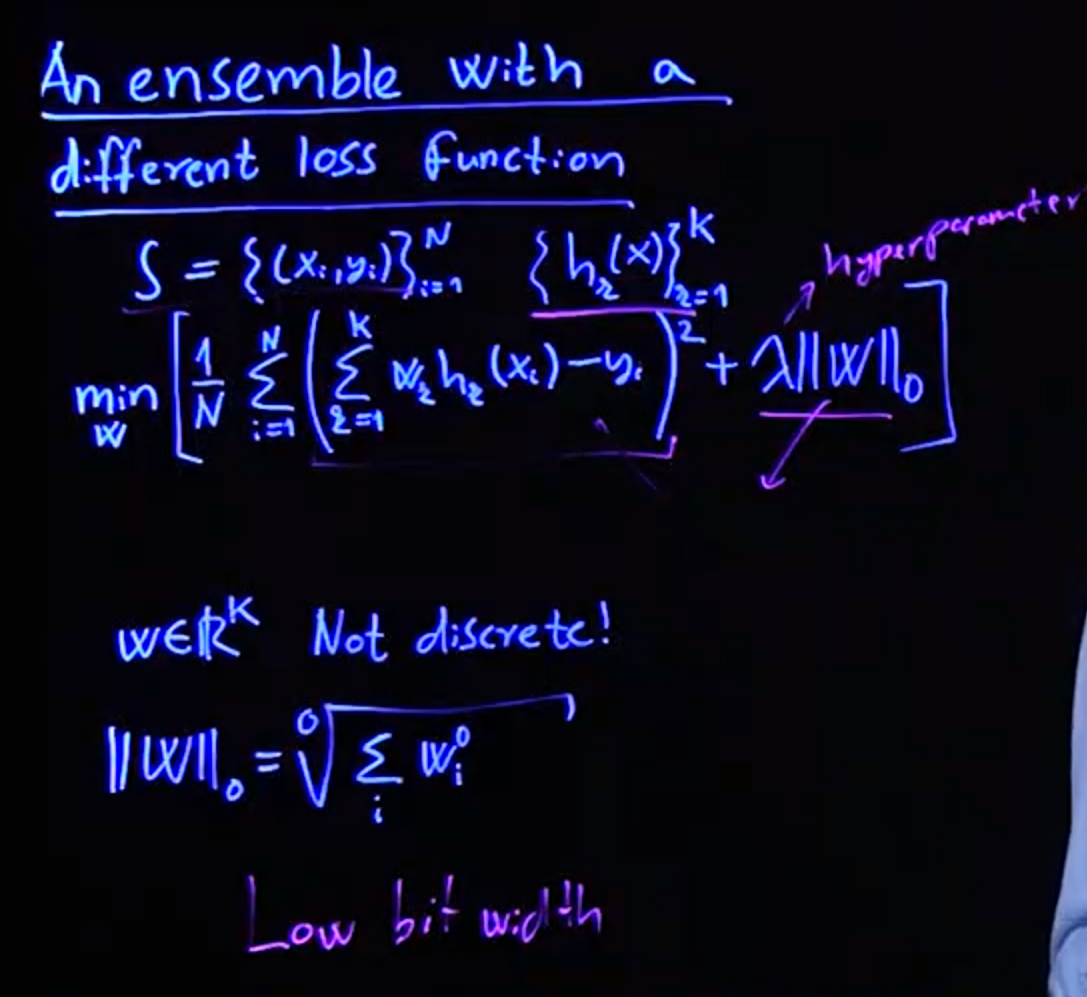 An ensemble with a
different loss function
S = {(xᵢ,yᵢ)}ᵢ₌₁ᴺ {h_z(x)}_{z=1}^K
hyperparameter
min_w [ 1/N Σ_{i=1}^N ( Σ_{z=1}^K w_z h_z (xᵢ) − yᵢ )² + λ||W||₀ ]
w∈ℝᴷ Not discrete!
||W||₀ = ⁰√ Σᵢ wᵢ⁰
Low bit width